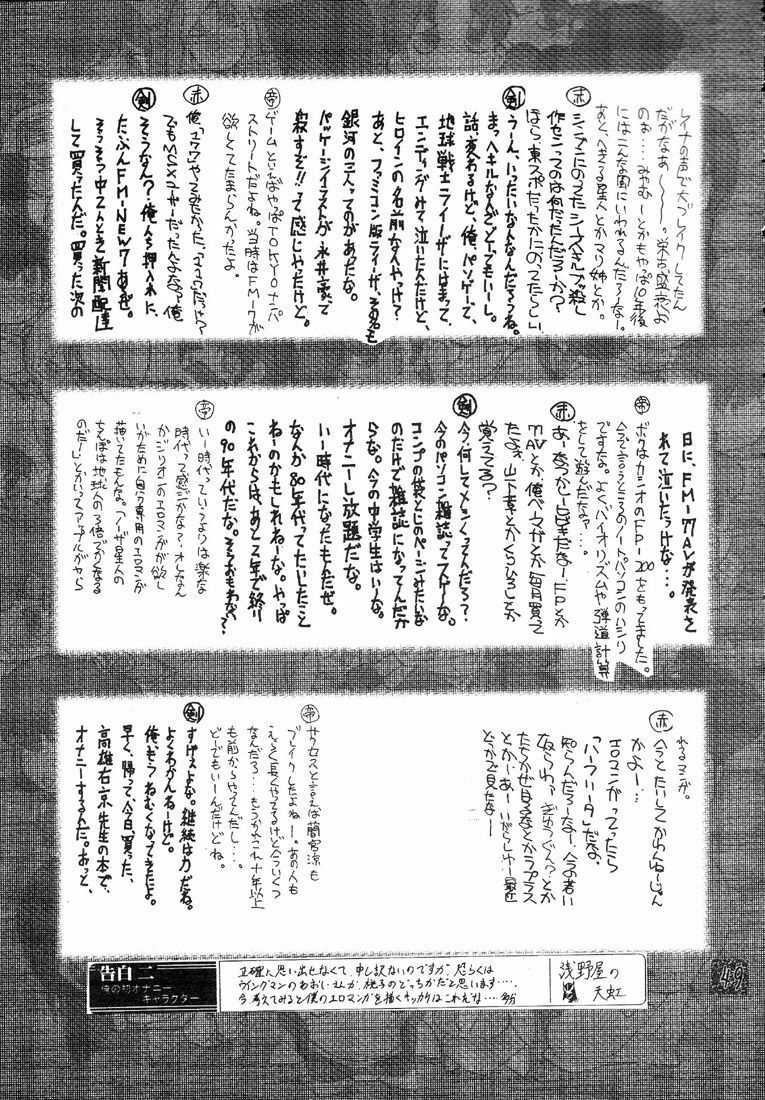 レイナの声で大ブレイクしてたん
だがなあ〜〜。栄古盛衰よ
のぉ…。みやむーとかもやっぱ10年後
にはこんな風にいわれるんだろーなー。
あと、へきる星人とかマリ姉とか。
赤
作センっつのは何だったんだろーか？
ほら、東スポだったかにのってたらしい。
剣
うーん、いったいなんなんだろうね。
まっ、ヘキルなんざどーでもいーし。
話、変わるけど、俺、パソゲーで、
地球戦士ライーザにはまって、
エンディングみて泣いたんだけど、
ヒロインの名前なんやっけ？
あと、ファミコン版ライーザ、その名も
銀河の三人ってのがあったな。
パッケージイラストが永井豪って
寂すぎ!!って感じやったけど。
帝
ゲームといえばやっぱTOKYOナンパ
ストリートだよね。当時はFM-7が
欲しくてたまらんかったよ。
赤
でもMSXユーザーだったんよなあ、俺
剣
そうなん？俺んち押入れに、
たぶんFM-NEW7あるぜ。
そろそろ中2んときに新聞配達
して買ったんだ。買った次の
日に、FM-77AVが発表さ
れて泣いたっけな…。
帝
ボクはカシオのFP-200をもってました。
今で言うところのノートパソコンのハシリ
ですな。よく、バイオリズムや弾道計算
をして遊んだなぁ…。
赤
あー、なつかしーひびきだなー。FPとか
77AVとか、俺ベーマガとか毎月買って
たよぉ。山下章とかくりひろしとか
覚えてるう？
剣
今、何してメシくってんだろう？
今のパソコン雑誌ってスゲーな。
コンプの袋とじのページみたいな
のだけで雑誌になってんだか
らな。今の中学生はいーな。
オナニーし放題だな。
いー時代になったもんだぜ。
なんか80年代ってたいしたこと
ねーのかもしれねーな。やっぱ
これからは、あと2年で終り
の90年代だな。そうおもわね？
帝
いー時代っていうよりは楽な
時代って感じかな？オレなん
かジリオンのエロマンガが欲し
いがために自分専用のエロマンガ
描いてたもんな。ノーザ星人の
ちんぽは地球人の3倍づつくなる
のだ！とかいってアップルがやら
れるマンガ。
赤
今とたいしてかわんねーじゃん
かよー。
エロマンガってったら
「ハーフリータ」だな。
知らんだろーなー、今の若い
奴らわ。ぎゅうぐん？とか
とか。あー、いがらしゅー最近
どっかで見たなー
帝
サクセスと言えば蘭宮涼も
ブレイクしたよねー。あの人も
えらく長くやってるけど今いくつ
なんだろ…。もうかれこれ十年以上
も前からやってんだし…。
どーでもいーんだけどね。
剣
すげぇよな。継続は力だね。
よくわかんねーけど。
俺、もうねむくなってきたよ。
早く、帰って、今日買った、
高雄右京先生の本で
オナニーするんだ。おっと、
告白二
俺の初オナニー
キャラクター
正確に思い出せなくて、申し訳ないのですが、恐らくは
ウイングマンのあおいさんか、桃子のどっちかだと思います…。
今、考えてみると僕のエロマンガを描くキッカケはこれだな…。
浅野屋の
天虹
49